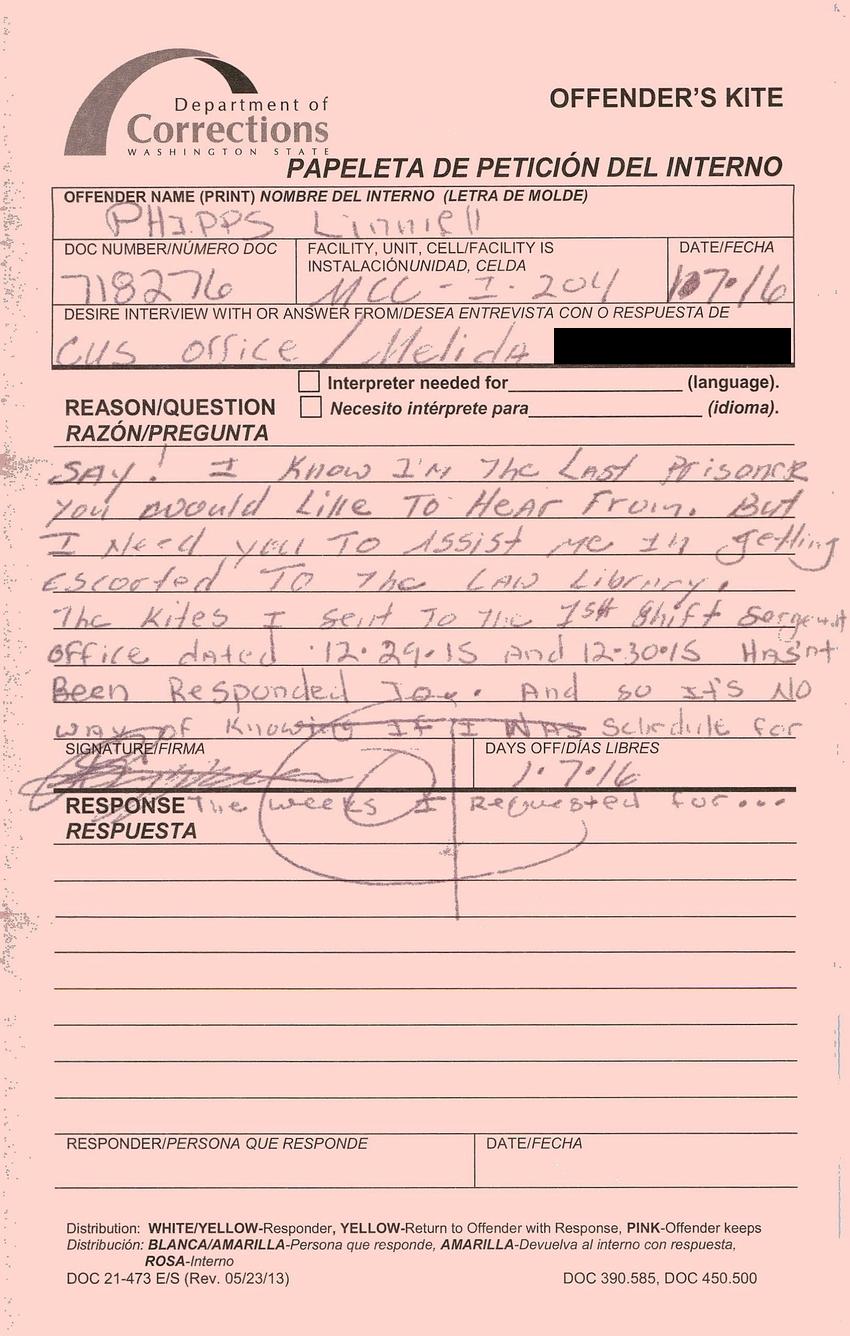 Department of
Corrections
WASHINGTON STATE
OFFENDER'S KITE
PAPELETA DE PETICIÓN DEL INTERNO
OFFENDER NAME (PRINT) NOMBRE DEL INTERNO (LETRA DE MOLDE)
PHIPPS Linniell
DOC NUMBER/NÚMERO DOC
718276
FACILITY, UNIT, CELL/FACILITY IS
INSTALACIÓNUNIDAD, CELDA
MCC - I - 204
DATE/FECHA
1•7•16
DESIRE INTERVIEW WITH OR ANSWER FROM/DESEA ENTREVISTA CON O RESPUESTA DE
CUS office / Melida
Interpreter needed for (language).
REASON/QUESTION Necesito intérprete para (idioma).
RAZÓN/PREGUNTA
SAY! I Know I'm The Last Prisoner
You would Like To Hear From. But
I Need you To Assist me In getting
Escorted To The LAW Library.
The Kites I sent To The 1st Shift Sergeant
office dated 12•29•15 And 12•30•15 Hasn't
Been Responded Too. And so it's NO
way of Knowing If I WAS Schedule for
SIGNATURE/FIRMA
DAYS OFF/DÍAS LIBRES
1•7•16
RESPONSE The weeks I Requested for...
RESPUESTA
RESPONDER/PERSONA QUE RESPONDE
DATE/FECHA
Distribution: WHITE/YELLOW-Responder, YELLOW-Return to Offender with Response, PINK-Offender keeps
Distribución: BLANCA/AMARILLA-Persona que responde, AMARILLA-Devuelva al interno con respuesta,
ROSA-Interno
DOC 21-473 E/S (Rev. 05/23/13)
DOC 390.585, DOC 450.500